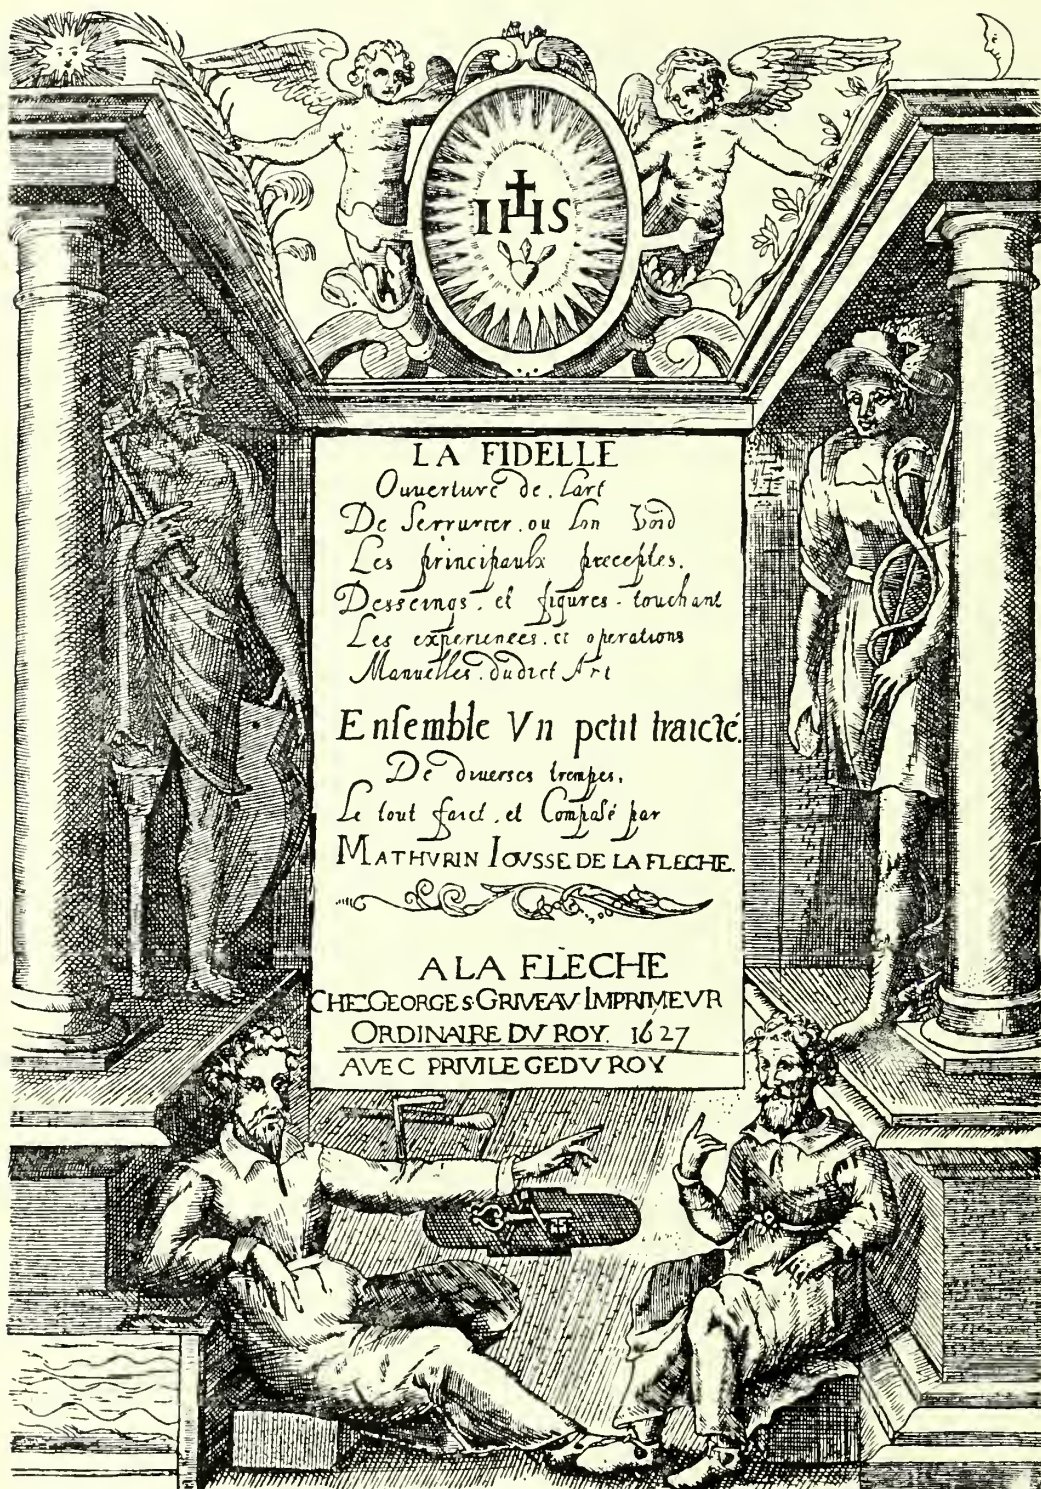 IHS
LA FIDELLE
Ouuerture de. l'art
De Serrurier. ou lon Void
Les principaulx preceptes.
Desseings. et figures. touchant
Les experiences. et operations
Manuelles. dudict Art
Ensemble Vn petit traicté.
De diuerses trempes.
Le tout faict. et Composé par
MATHVRIN IOVSSE DE LA FLECHE.
A LA FLECHE
CHEZ GEORGES GRIVEAV IMPRIMEVR
ORDINAIRE DV ROY. 1627
AVEC PRIVILEGE DV ROY